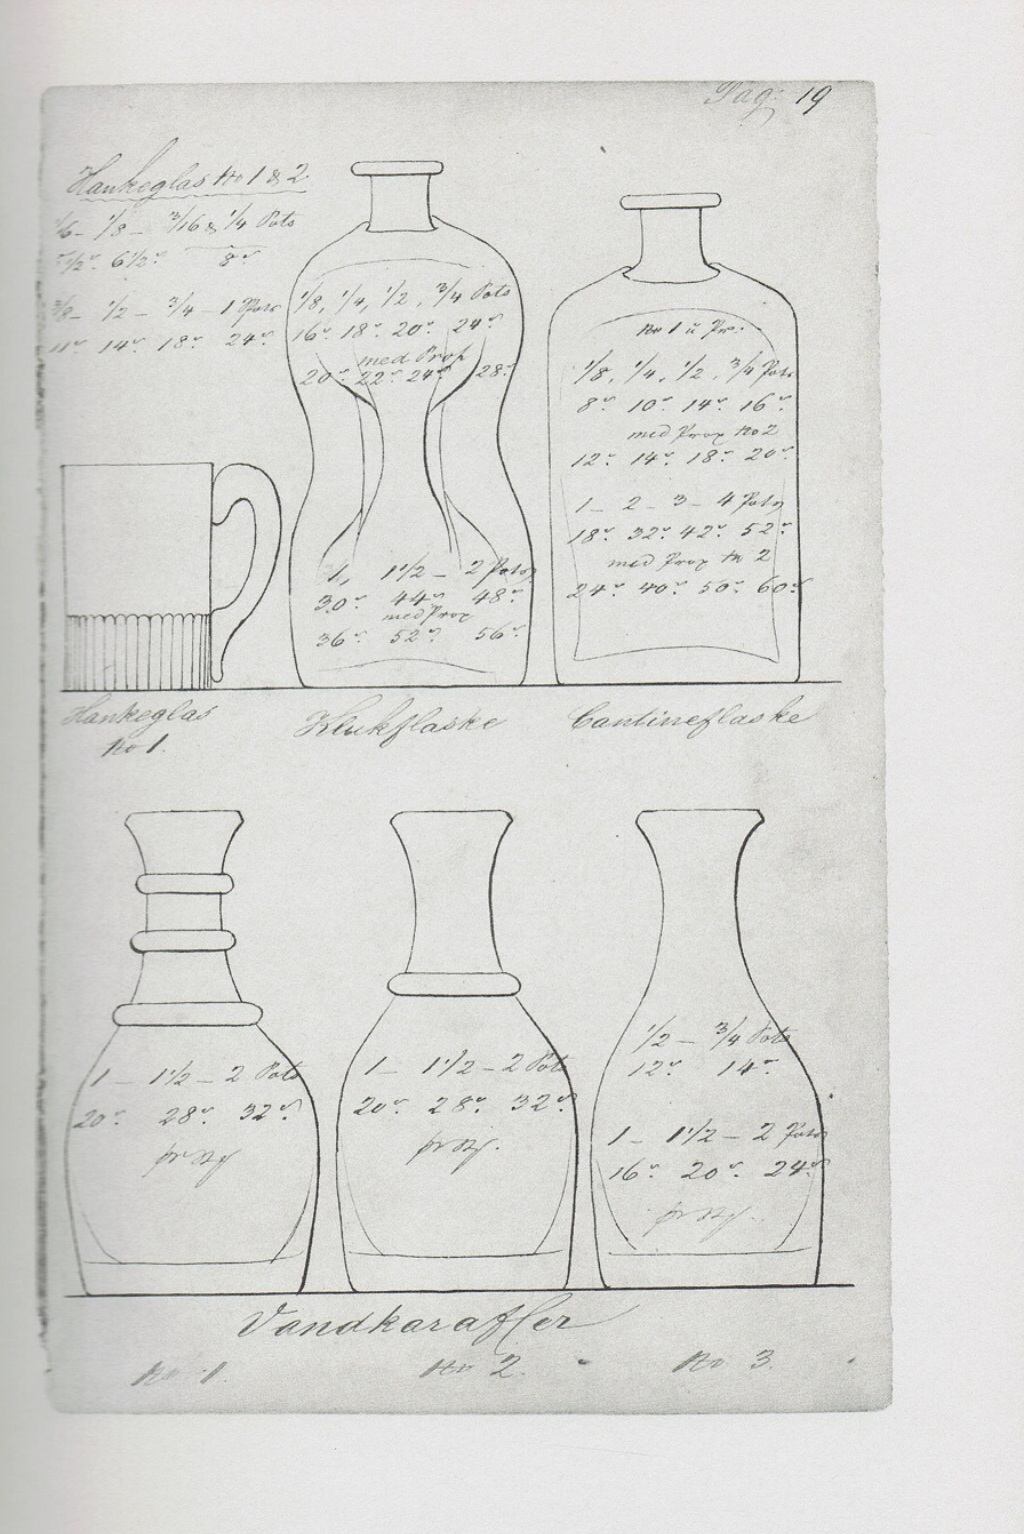 Pag: 19
Hankeglas No 1 & 2.
1/8 – 3/16 & 1/4 Pots
6 1/2 8
1/2 – 3/4 – 1 Pots
14 18 24
1/8, 1/4, 1/2, 3/4 Pots
16 18 20 24
med Prop
20 22 24 28
1, 1 1/2 – 2 Pots
30 44 48
med Prop
36 52 56
No 1 u Pr:
1/8, 1/4, 1/2, 3/4 Pots
8 10 14 16
med Prop No 2
12 14 18 20
1 – 2 – 3 – 4 Pots
18 32 42 52
med Prop No 2
24 40 50 60
Hankeglas
No 1.
Klukflaske
Cantineflaske
1 – 1 1/2 – 2 Pots
20 28 32
pr
1 – 1 1/2 – 2 Pots
20 28 32
pr
1/2 – 3/4 Pots
12 14
1 – 1 1/2 – 2 Pots
16 20 24
pr
Vandkarafler
No 1. No 2. No 3.